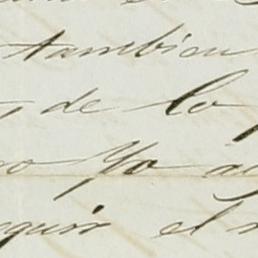 tambien
, de lo
no Yo
eguir el